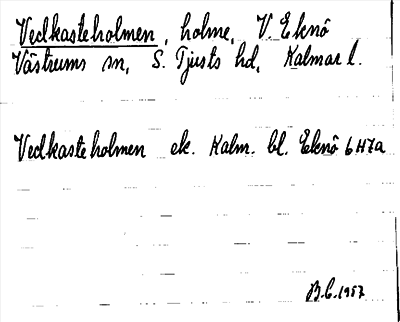 Vedkasteholmen, holme, V. Eknö
Västrums sn, S. Tjusts hd, Kalmar l.
Vedkasteholmen ek. Kalm. bl. Eknö 6H7a
B.C. 1957